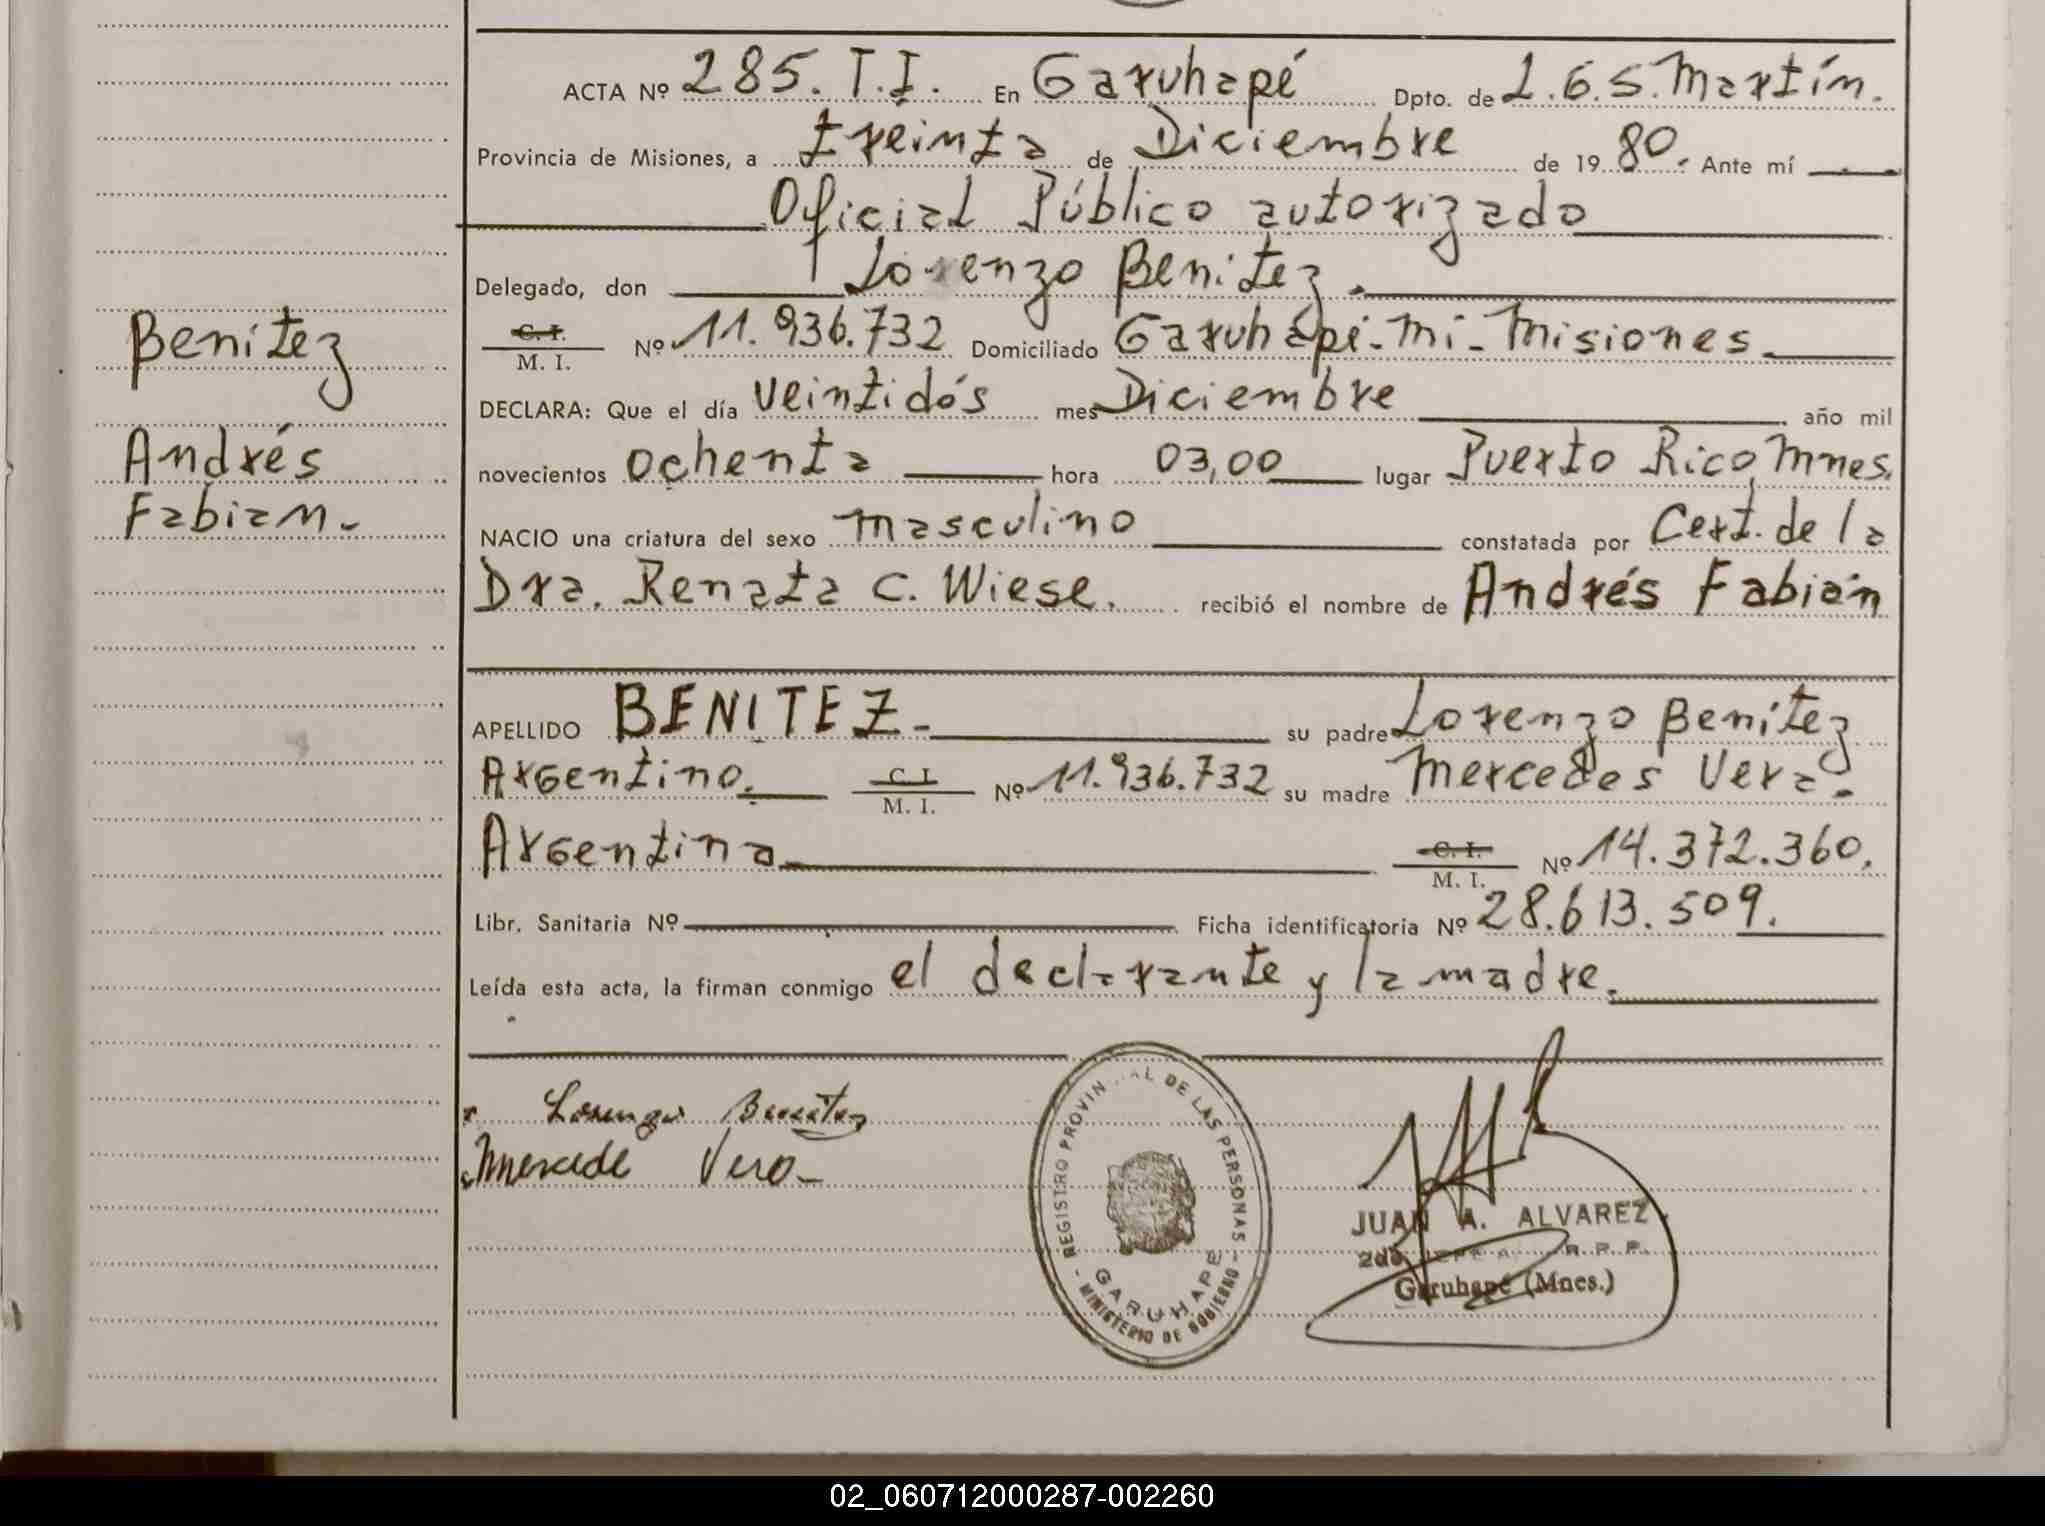 ACTA Nº 285. T.I. En Garuhapé Dpto. de L.G.S. Martín.
Provincia de Misiones, a treinta de Diciembre de 1980. Ante mí
Oficial Público autorizado
Delegado, don Lorenzo Benitez.
C. I.
M. I. Nº 11.936.732 Domiciliado Garuhapé-Mi-Misiones
DECLARA: Que el día veintidós mes Diciembre año mil
novecientos ochenta hora 03,00 lugar Puerto Rico, Mnes.
NACIO una criatura del sexo masculino constatada por Cert. de la
Dra. Renata C. Wiese. recibió el nombre de Andrés Fabián
Benítez
Andrés
Fabian.-
APELLIDO BENITEZ- su padre Lorenzo Benítez
Argentino. C. I.
M. I. Nº 11.936.732 su madre Mercedes Vera.
Argentina C. I.
M. I. Nº 14.372.360.
Libr. Sanitaria Nº Ficha identificatoria Nº 28.613.509.
Leída esta acta, la firman conmigo el declarante y la madre.
Lorenzo Benitez
Mercede Vera-
REGISTRO PROVIN AL DE LAS PERSONAS - MINISTERIO DE GOBIERNO -
GARUHAPE
JUAN A. ALVAREZ
2do R. P. P.
Garuhapé (Mnes.)
02_060712000287-002260